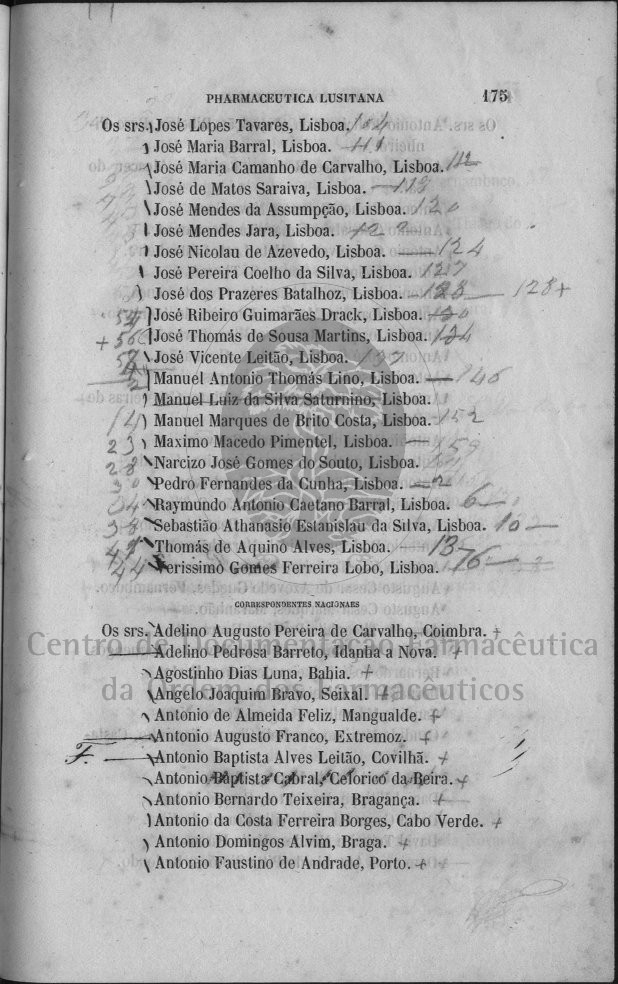 PHARMACEUTICA LUSITANA 175
Os srs. José Lopes Tavares, Lisboa. 104
José Maria Barral, Lisboa. 111
José Maria Camanho de Carvalho, Lisboa. 112
José de Matos Saraiva, Lisboa. — 118
José Mendes da Assumpção, Lisboa. 120
José Mendes Jara, Lisboa. 122
José Nicolau de Azevedo, Lisboa. — 124
José Pereira Coelho da Silva, Lisboa. 127
José dos Prazeres Batalhoz, Lisboa. — 128 — 128+
54 José Ribeiro Guimarães Drack, Lisboa. 130
+ 56 José Thomás de Sousa Martins, Lisboa. 134
57 José Vicente Leitão, Lisboa. 137
2 Manuel Antonio Thomás Lino, Lisboa. — 146
Manuel Luiz da Silva Saturnino, Lisboa.
14 Manuel Marques de Brito Costa, Lisboa. 152
23 Maximo Macedo Pimentel, Lisboa. — 159
28 Narcizo José Gomes do Souto, Lisboa.
30 Pedro Fernandes da Cunha, Lisboa. — 2
34 Raymundo Antonio Caetano Barral, Lisboa. 6 —
38 Sebastião Athanasio Estanislau da Silva, Lisboa. 10 —
42 Thomás de Aquino Alves, Lisboa. — 13 —
44 Verissimo Gomes Ferreira Lobo, Lisboa. 16 —
CORRESPONDENTES NACIONAES
Os srs. Adelino Augusto Pereira de Carvalho, Coimbra. +
Adelino Pedrosa Barreto, Idanha a Nova. +
Centro de Documentação Farmacêutica
Agostinho Dias Luna, Bahia. +
da Ordem dos Farmacêuticos
Angelo Joaquim Bravo, Seixal. +
Antonio de Almeida Feliz, Mangualde. +
Antonio Augusto Franco, Extremoz. +
F. — Antonio Baptista Alves Leitão, Covilhã. +
Antonio Baptista Cabral, Celorico da Beira. +
Antonio Bernardo Teixeira, Bragança. +
Antonio da Costa Ferreira Borges, Cabo Verde. +
Antonio Domingos Alvim, Braga. +
Antonio Faustino de Andrade, Porto. +